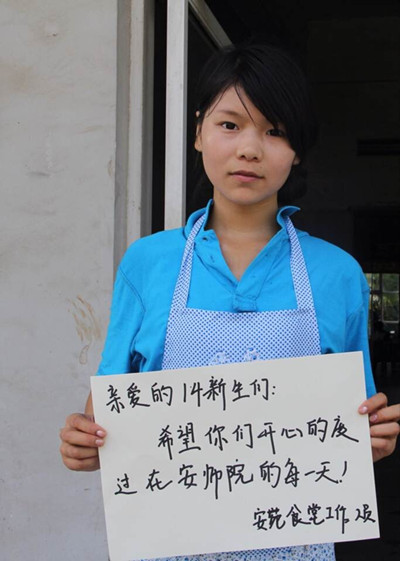 亲爱的14新生们:
希望你们开心的度
过在安师院的每一天!
安苑食堂工作人员